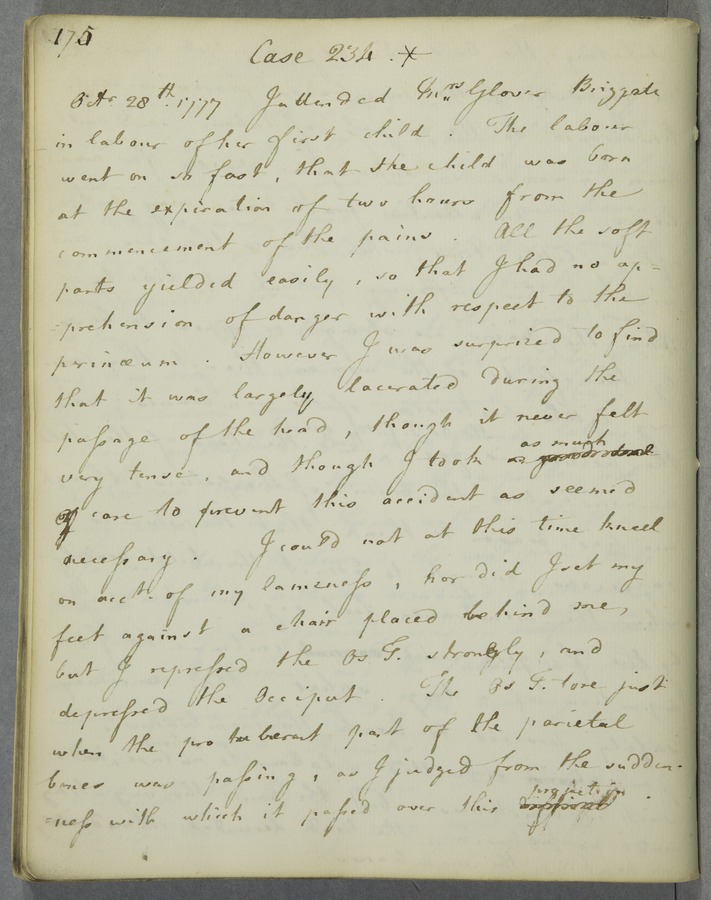 175
Case 234. ×
Octr 28th 1777 I attended Mrs Glover Briggate
in labour of her first child. The labour
went on so fast, that the child was born
at the expiration of two hours from the
commencement of the pains. All the soft
parts yielded easily, so that I had no ap=
=prehension of danger with respect to the
perinæum. However I was surprized to find
that it was largely lacerated during the
passage of the head, though it never felt
very tense, and though I took as much
care to prevent this accident as seemed
necessary. I could not at this time kneel
on acct. of my lameness, nor did I set my
feet against a chair placed behind me,
but I repressed the Os F. strongly, and
depressed the Occiput. The Os F. tore just
when the protuberant part of the parietal
bones was passing, as I judged from the sudden-
=ness with which it passed over this projection.